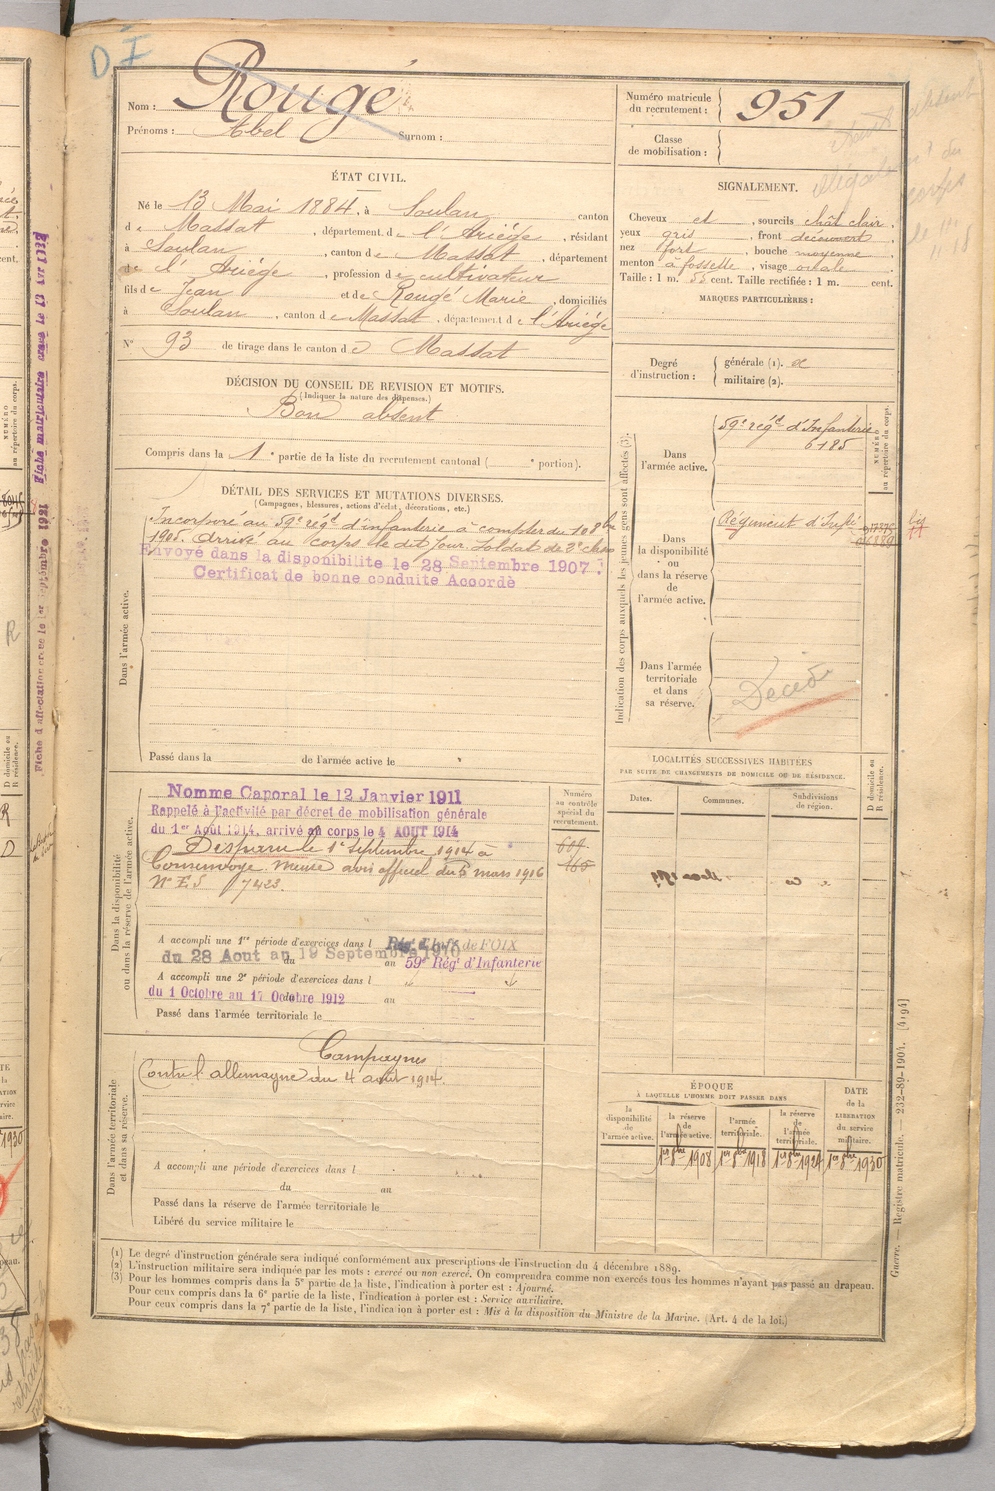 D I
Nom : Rougé
Prénoms : Abel Surnom :
Numéro matricule du recrutement : 951
Classe de mobilisation :
ÉTAT CIVIL.
Né le 13 Mai 1884, à Soulan canton
de Massat, département de l'Ariège, résidant
à Soulan, canton de Massat, département
de l'Ariège, profession de cultivateur
fils de Jean et de Rougé Marie, domiciliés
à Soulan, canton de Massat, département de l'Ariège
N° 93 de tirage dans le canton de Massat
SIGNALEMENT.
Cheveux et, sourcils chât clair,
yeux gris, front découvert,
nez fort, bouche moyenne,
menton à fossette, visage ovale
Taille : 1 m. 55 cent. Taille rectifiée : 1 m. cent.
MARQUES PARTICULIÈRES :
Degré d'instruction : générale (1).
militaire (2).
DÉCISION DU CONSEIL DE REVISION ET MOTIFS.
(Indiquer la nature des dispenses.)
Bon absent
Compris dans la 1e partie de la liste du recrutement cantonal ( e portion).
DÉTAIL DES SERVICES ET MUTATIONS DIVERSES.
(Campagnes, blessures, actions d'éclat, décorations, etc.)
Dans l'armée active.
Incorporé au 59e rég d'infanterie à compter du 10 8bre
1905. Arrivé au corps le dit jour. Soldat de 2e classe
Envoyé dans la disponibilite le 28 Septembre 1907 :
Certificat de bonne conduite Accordé
Passé dans la de l'armée active le
Indication des corps auxquels les jeunes gens sont affectés (3).
NUMÉRO au répertoire du corps.
Dans l'armée active.
59e régt d'Infanterie
6185
Dans la disponibilité ou dans la réserve de l'armée active.
Régiment d'Inf
Dans l'armée territoriale et dans sa réserve.
Décédé
Dans la disponibilité ou dans la réserve de l'armée active.
Nomme Caporal le 12 Janvier 1911
Rappelé à l'activité par décret de mobilisation générale
du 1er Août 1914, arrivé au corps le 4 AOUT 1914
Disparu le 1er Septembre 1914 à
Consenvoye Meuse avis officiel du 5 mars 1916
N° E.S 7423.
A accompli une 1re période d'exercices dans l Rég d'Inf de FOIX
du 28 Aout au 19 Septembre 1910 du au 59e Rég' d'Infanterie
A accompli une 2e période d'exercices dans l
du 1 Octobre au 17 Octobre 1912 du au
Passé dans l'armée territoriale le
Numéro au contrôle spécial du recrutement.
LOCALITÉS SUCCESSIVES HABITÉES
PAR SUITE DE CHANGEMENTS DE DOMICILE OU DE RÉSIDENCE.
Dates. Communes. Subdivisions de région.
D domicile au R résidence.
Dans l'armée territoriale et dans sa réserve.
Campagnes
Contre l'allemagne du 4 août 1914.
A accompli une période d'exercices dans l
du au
Passé dans la réserve de l'armée territoriale le
Libéré du service militaire le
ÉPOQUE
À LAQUELLE L'HOMME DOIT PASSER DANS
la disponibilité de l'armée active. la réserve de l'armée active. l'armée territoriale. la réserve de l'armée territoriale. DATE de la LIBÉRATION du service militaire.
1er 8bre 1908 1er 8bre 1918 1er 8bre 1924 1er 8bre 1930
(1) Le degré d'instruction générale sera indiqué conformément aux prescriptions de l'instruction du 4 décembre 1889.
(2) L'instruction militaire sera indiquée par les mots : exercé ou non exercé. On comprendra comme non exercés tous les hommes n'ayant pas passé au drapeau.
(3) Pour les hommes compris dans la 5e partie de la liste, l'indication à porter est : Ajourné.
Pour ceux compris dans la 6e partie de la liste, l'indication à porter est : Service auxiliaire.
Pour ceux compris dans la 7e partie de la liste, l'indication à porter est : Mis à la disposition du Ministre de la Marine. (Art. 4 de la loi.)
Guerre. — Registre matricule. — 232-89-1904. [4194]